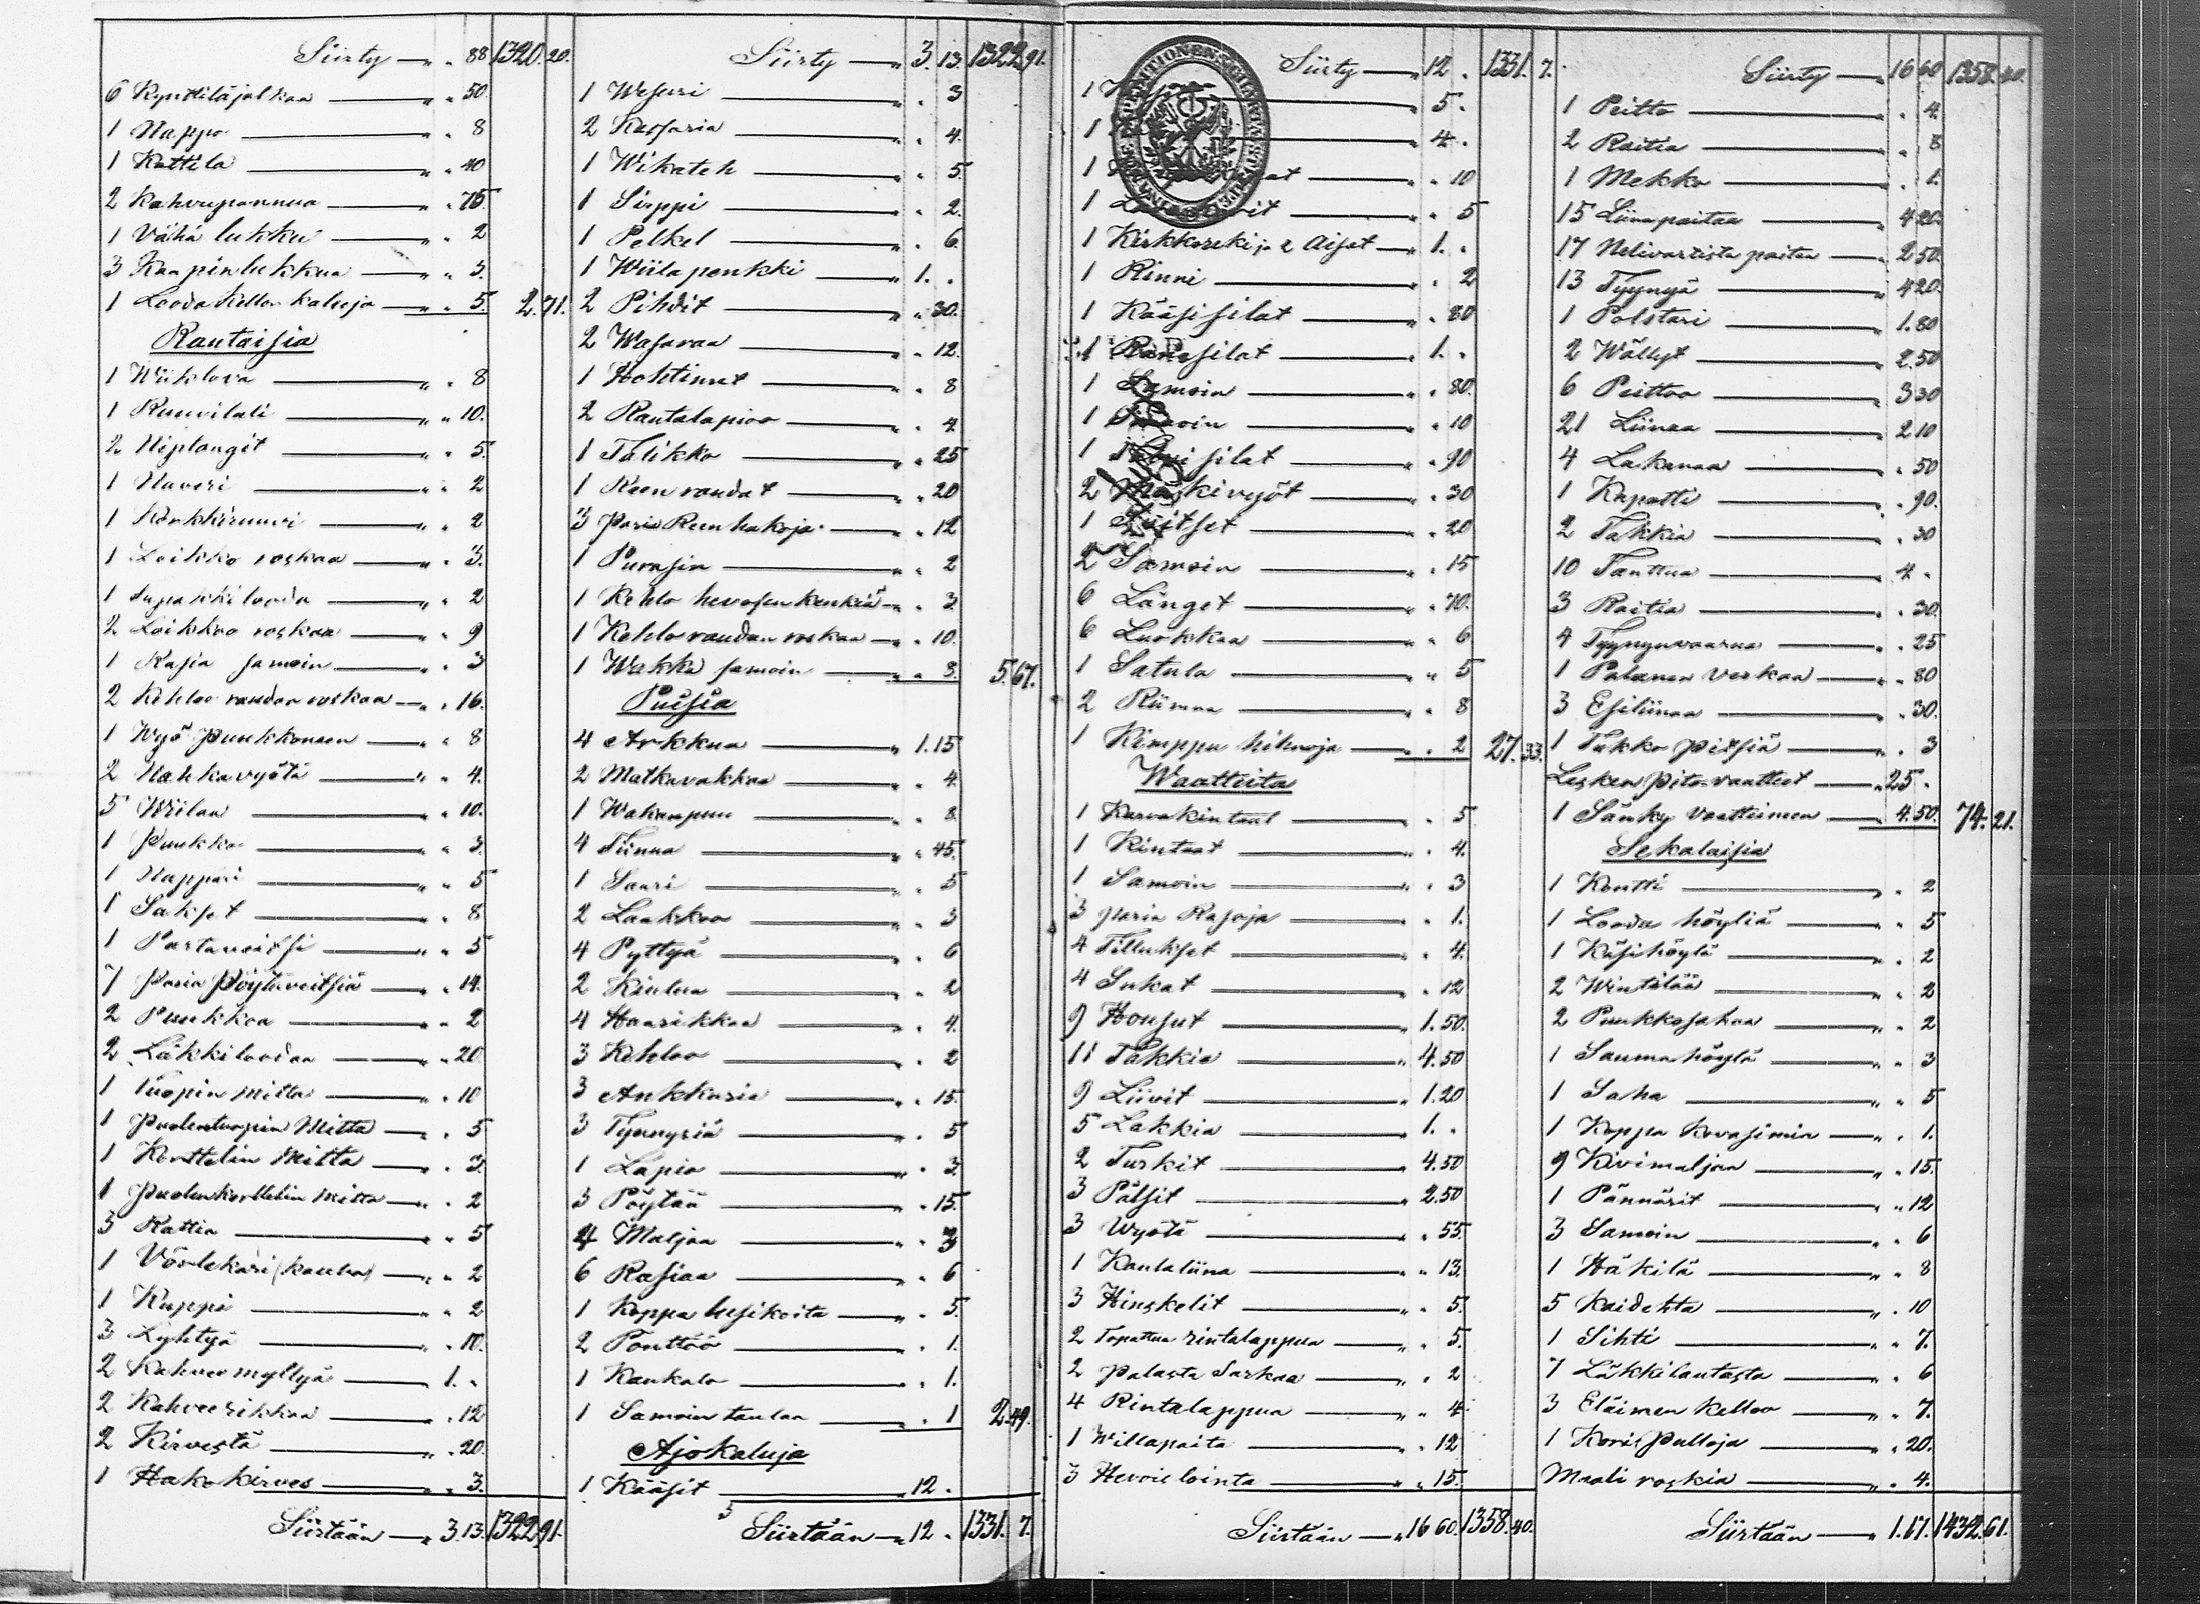 Siirty — " 88 1320. 20.
6 Kynttiläjalkaa — " " 50.
1 Nappo — " " 8
1 Kattila — " " 40
2 Kahvipannua — " " 75.
1 Vähä lukku — " " 2
3 Kaapinlukkua — " " 3.
1 Looda Kellon kaluja — " " 5. 2. 71.
Rautaisia
1 — " " 8
1 Ruuvilali — " " 10.
2 — " " 5.
1 Naveri — " " 2
1 Korkkiruuvi — " " 2
1 Loikko roskaa — " " 3.
1 — " " 2
2 Loikkoo roskaa — " " 9
1 Rasia samoin — " " 3
2 Kehloo raudan roskaa — " " 16.
1 Wyö Puukkoneen — " " 8
2 Nahkavyötä — " " 4.
5 Wiilaa — " " 10.
1 Puukko — " " 3.
1 Nappari — " " 5
1 Sakset — " " 8
1 Partaveitsi — " " 5
7 Paria Pöytäveitsiä — " " 14.
2 Puukkoa — " " 2
2 Läkkiloodaa — " " 20.
1 Tuopin Mitta — " " 10
1 Puolentuopin Mitta — " " 5
1 Korttelin Mitta — " " 3.
1 Puolenkorttelin Mitta — " " 2
3 Rattia — " " 5
1 (kauha) — " " 2
1 Kuppi — " " 2
3 Lyhtyä — " " 10.
2 Kahvee myllyä — " 1. "
2 Kahveerikkaa — " " 12
2 Kirvestä — " " 20.
1 Hakokirves — " " 3.
Siirtään — " 3. 13. 1322. 91.
Siirty — " 3. 13. 1322. 91.
1 Wesuri — " " 3
2 Kuokkaa — " " 4.
1 Wikateh — " " 5.
1 Sirppi — " " 2.
1 Pelkel — " " 6.
1 Wiilapenkki — " 1. "
2 Pihdit — " " 30.
2 Wasaraa — " " 12.
1 Hohtimet — " " 8
2 Rautalapioo — " " 4.
1 Talikko — " " 25
1 Reen raudat — " " 20
3 Paria Reen hakoja — " " 12
1 Purasin — " " 2
1 Kehlo hevosen kenkiä — " " 3.
1 Kehlo raudan roskaa — " " 10.
1 Wakka samoin — " " 3. 5. 67.
Puisia
4 Arkkua — " 1. 15
2 Matkavakkaa — " " 4.
1 Wakanpuu — " " 8.
4 Tiinua — " " 45.
1 Saavi — " " 5
2 Laukkoo — " " 3
4 Pyttyä — " " 6
2 Kiulua — " " 2
4 Haarikkaa — " " 4.
3 Kehloo — " " 2
3 Ankkuria — " " 15.
3 Tynnyriä — " " 5
1 Lapio — " " 3.
3 Pöytää — " " 15.
4 Maljaa — " " 3
6 Rasiaa — " " 6
1 Koppa lusikoita — " " 5.
2 Ponttöö — " " 1.
1 Kaukalo — " " 1.
1 Samoin taulaa — " " 1 2. 49.
Ajokaluja
1 Kääsit — " 12 "
Siirtään — " 12 " 1331. 7.
Siirty — " 12 " 1331. 7.
1 — " 5. "
1 — " 4. "
1 — " " 10
1 — " " 5
1 Kirkkoreki ja 2 Aisat — " 1. "
1 Rinni — " " 2
1 Kääsisilat — " " 80
1 — " 1. "
1 Samoin — " " 80.
1 Samoin — " " 10
1 — " " 90
2 — " " 30
1 Suitset — " " 20
2 Samoin — " " 15
6 Länget — " " 70.
6 Luokkaa — " " 6.
1 Satula — " " 5
2 Riimua — " " 8
1 Kimppu hihnoja — " " 2 27. 33.
Waatteita
1 Karvakintaat — " " 5
1 Kintaat — " " 4.
1 Samoin — " " 3
3 Paria Rasoja — " " 1.
4 Tillukset — " " 4.
4 Sukat — " " 12
9 Housut — " 1. 50.
11 Takkia — " 4. 50
9 Liivit — " 1. 20
5 Lakkia — " 1. "
2 Turkit — " 4. 50
3 Pälsit — " 2. 50
3 Wyötä — " " 55.
1 Kaulaliina — " " 13.
3 Hinskelit — " " 5.
2 Topattua rintalappua — " " 5.
2 Palasta Sarkaa — " " 2
4 Rintalappua — " " 4.
1 Willapaita — " " 12
3 Hevoisloimta — " " 15.
Siirtään — " 16 60. 1358. 40.
Siirty — " 16 60 1358. 40.
1 Peitto — " " 4.
2 Raitia — " " 8
1 Mekko — " " 1.
15 Liinapaitaa — " 4 20.
17 Nelivartista paitaa — " 2 50.
13 Tyynyä — " 4 20.
1 Polstari — " 1. 80
2 Wällyt — " 2. 50
6 Peittoo — " 3 30
21 Liinaa — " 2 10
4 Lakanaa — " " 50
1 Kapotti — " " 90.
2 Takkia — " " 30
10 Tanttua — " 4. "
3 Raitia — " " 30.
4 Tyynynvaarua — " " 25
1 Palanen Verkaa — " " 80
3 Esiliinaa — " " 30.
1 Tukko Pitsiä — " " 3
Lesken Pito-vaatteet — " 25 "
1 Sänky Vaatteineen — " 4. 50. 74. 21.
Sekalaisia
1 Kontti — " " 2
1 Looda höyliä — " " 5
1 Käsihöylä — " " 2
2 Wintilää — " " 2
2 Puukkosahaa — " " 2
1 Saumahöylä — " " 3
1 Saha — " " 5
1 Koppa Kovasimia — " " 1.
9 Kivimaljaa — " " 15.
1 Pännärit — " " 12
3 Samoin — " " 6
1 Häkilä — " " 8
5 Kaidehta — " " 10
1 Sihti — " " 7.
7 Läkkilautasta — " " 6
3 Eläimen Kelloo — " " 7.
1 Kori Pulloja — " " 20.
Maali roskia — " " 4.
Siirtään — " 1. 17. 1432. 61.